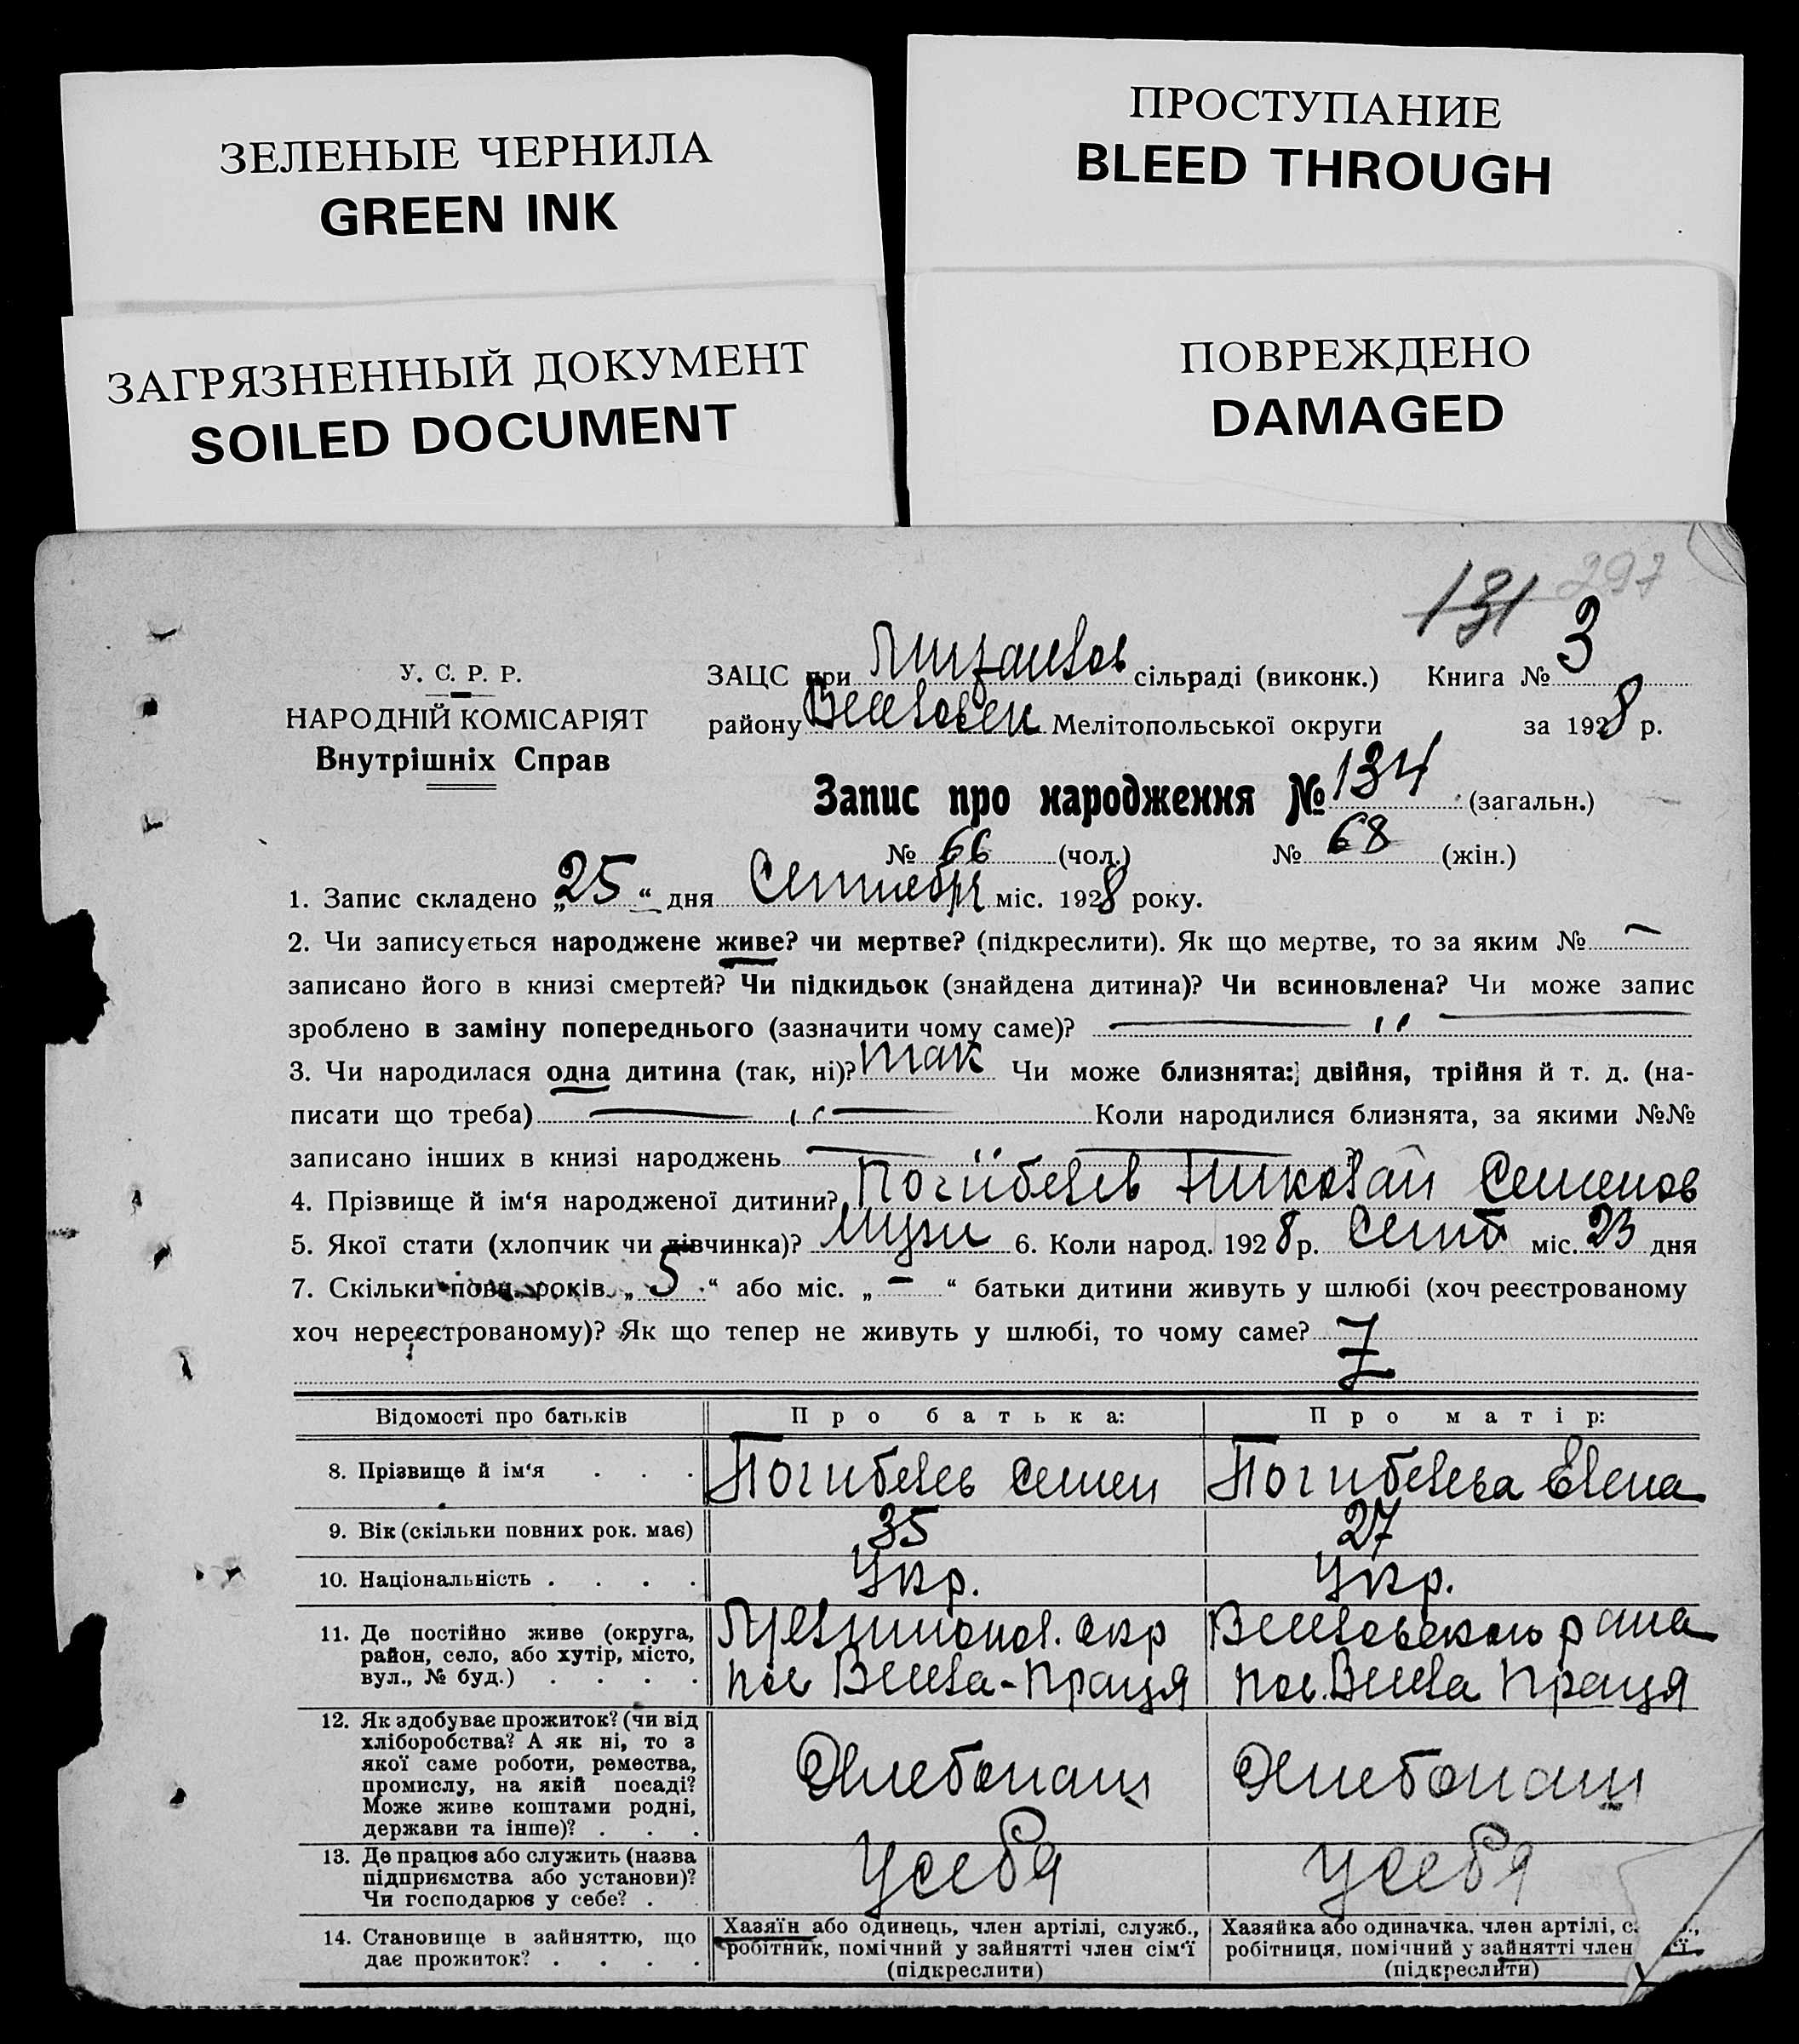 ЗЕЛЕНЫЕ ЧЕРНИЛА
GREEN INK
ПРОСТУПАНИЕ
BLEED THROUGH
ЗАГРЯЗНЕННЫЙ ДОКУМЕНТ
SOILED DOCUMENT
ПОВРЕЖДЕНО
DAMAGED
131 297
У. С. Р. Р.
НАРОДНІЙ КОМІСАРІЯТ
Внутрішніх Справ
ЗАЦС при сільраді (виконк.) Книга № 3
району Веселовск Мелітопольської округи за 1928 р.
Запис про народження № 134 (загальн.)
№ 66 (чол.) № 68 (жін.)
1. Запис складено „25“ дня Сентября міс. 1928 року.
2. Чи записується народжене живе? чи мертве? (підкреслити). Як що мертве, то за яким № —
записано його в книзі смертей? Чи підкидьок (знайдена дитина)? Чи всиновлена? Чи може запис
зроблено в заміну попереднього (зазначити чому саме)? — „ —
3. Чи народилася одна дитина (так, ні)? так Чи може близнята: двійня, трійня й т. д. (на-
писати що треба) — „ — Коли народилися близнята, за якими №№
записано інших в книзі народжень — „ —
4. Прізвище й ім‘я народженої дитини? Погибелев Николай Семенов
5. Якої стати (хлопчик чи дівчинка)? Мужи 6. Коли народ. 1928 р. Сент міс. 23 дня
7. Скільки повн. років „5“ або міс. „—“ батьки дитини живуть у шлюбі (хоч реєстрованому
хоч нереєстрованому)? Як що тепер не живуть у шлюбі, то чому саме?
Відомості про батьків
Про батька:
Про матір:
8. Прізвище й ім‘я . . .
Погибелев Семен
Погибелева Елена
9. Вік (скільки повних рок. має)
35
27
10. Національність . . . .
Укр.
Укр.
11. Де постійно живе (округа,
район, село, або хутір, місто,
вул., № буд.) . . . .
Мелитопол. окр
пос Весела-Праця
Веселовского рана
пос. Весела Праця
12. Як здобуває прожиток? (чи від
хліборобства? А як ні, то з
якої саме роботи, ремества,
промислу, на якій посаді?
Може живе коштами родні,
держави та інше)? . . .
Хлебопаш
Хлебопаш
13. Де працює або служить (назва
підприємства або установи)?
Чи господарює у себе? .
У себя
У себя
14. Становище в зайняттю, що
дає прожиток? . . . .
Хазяїн або одинець, член артілі, служб.,
робітник, помічний у зайнятті член сім‘ї
(підкреслити)
Хазяйка або одиначка, член артілі,
робітниця, помічний у зайнятті член
(підкреслити)